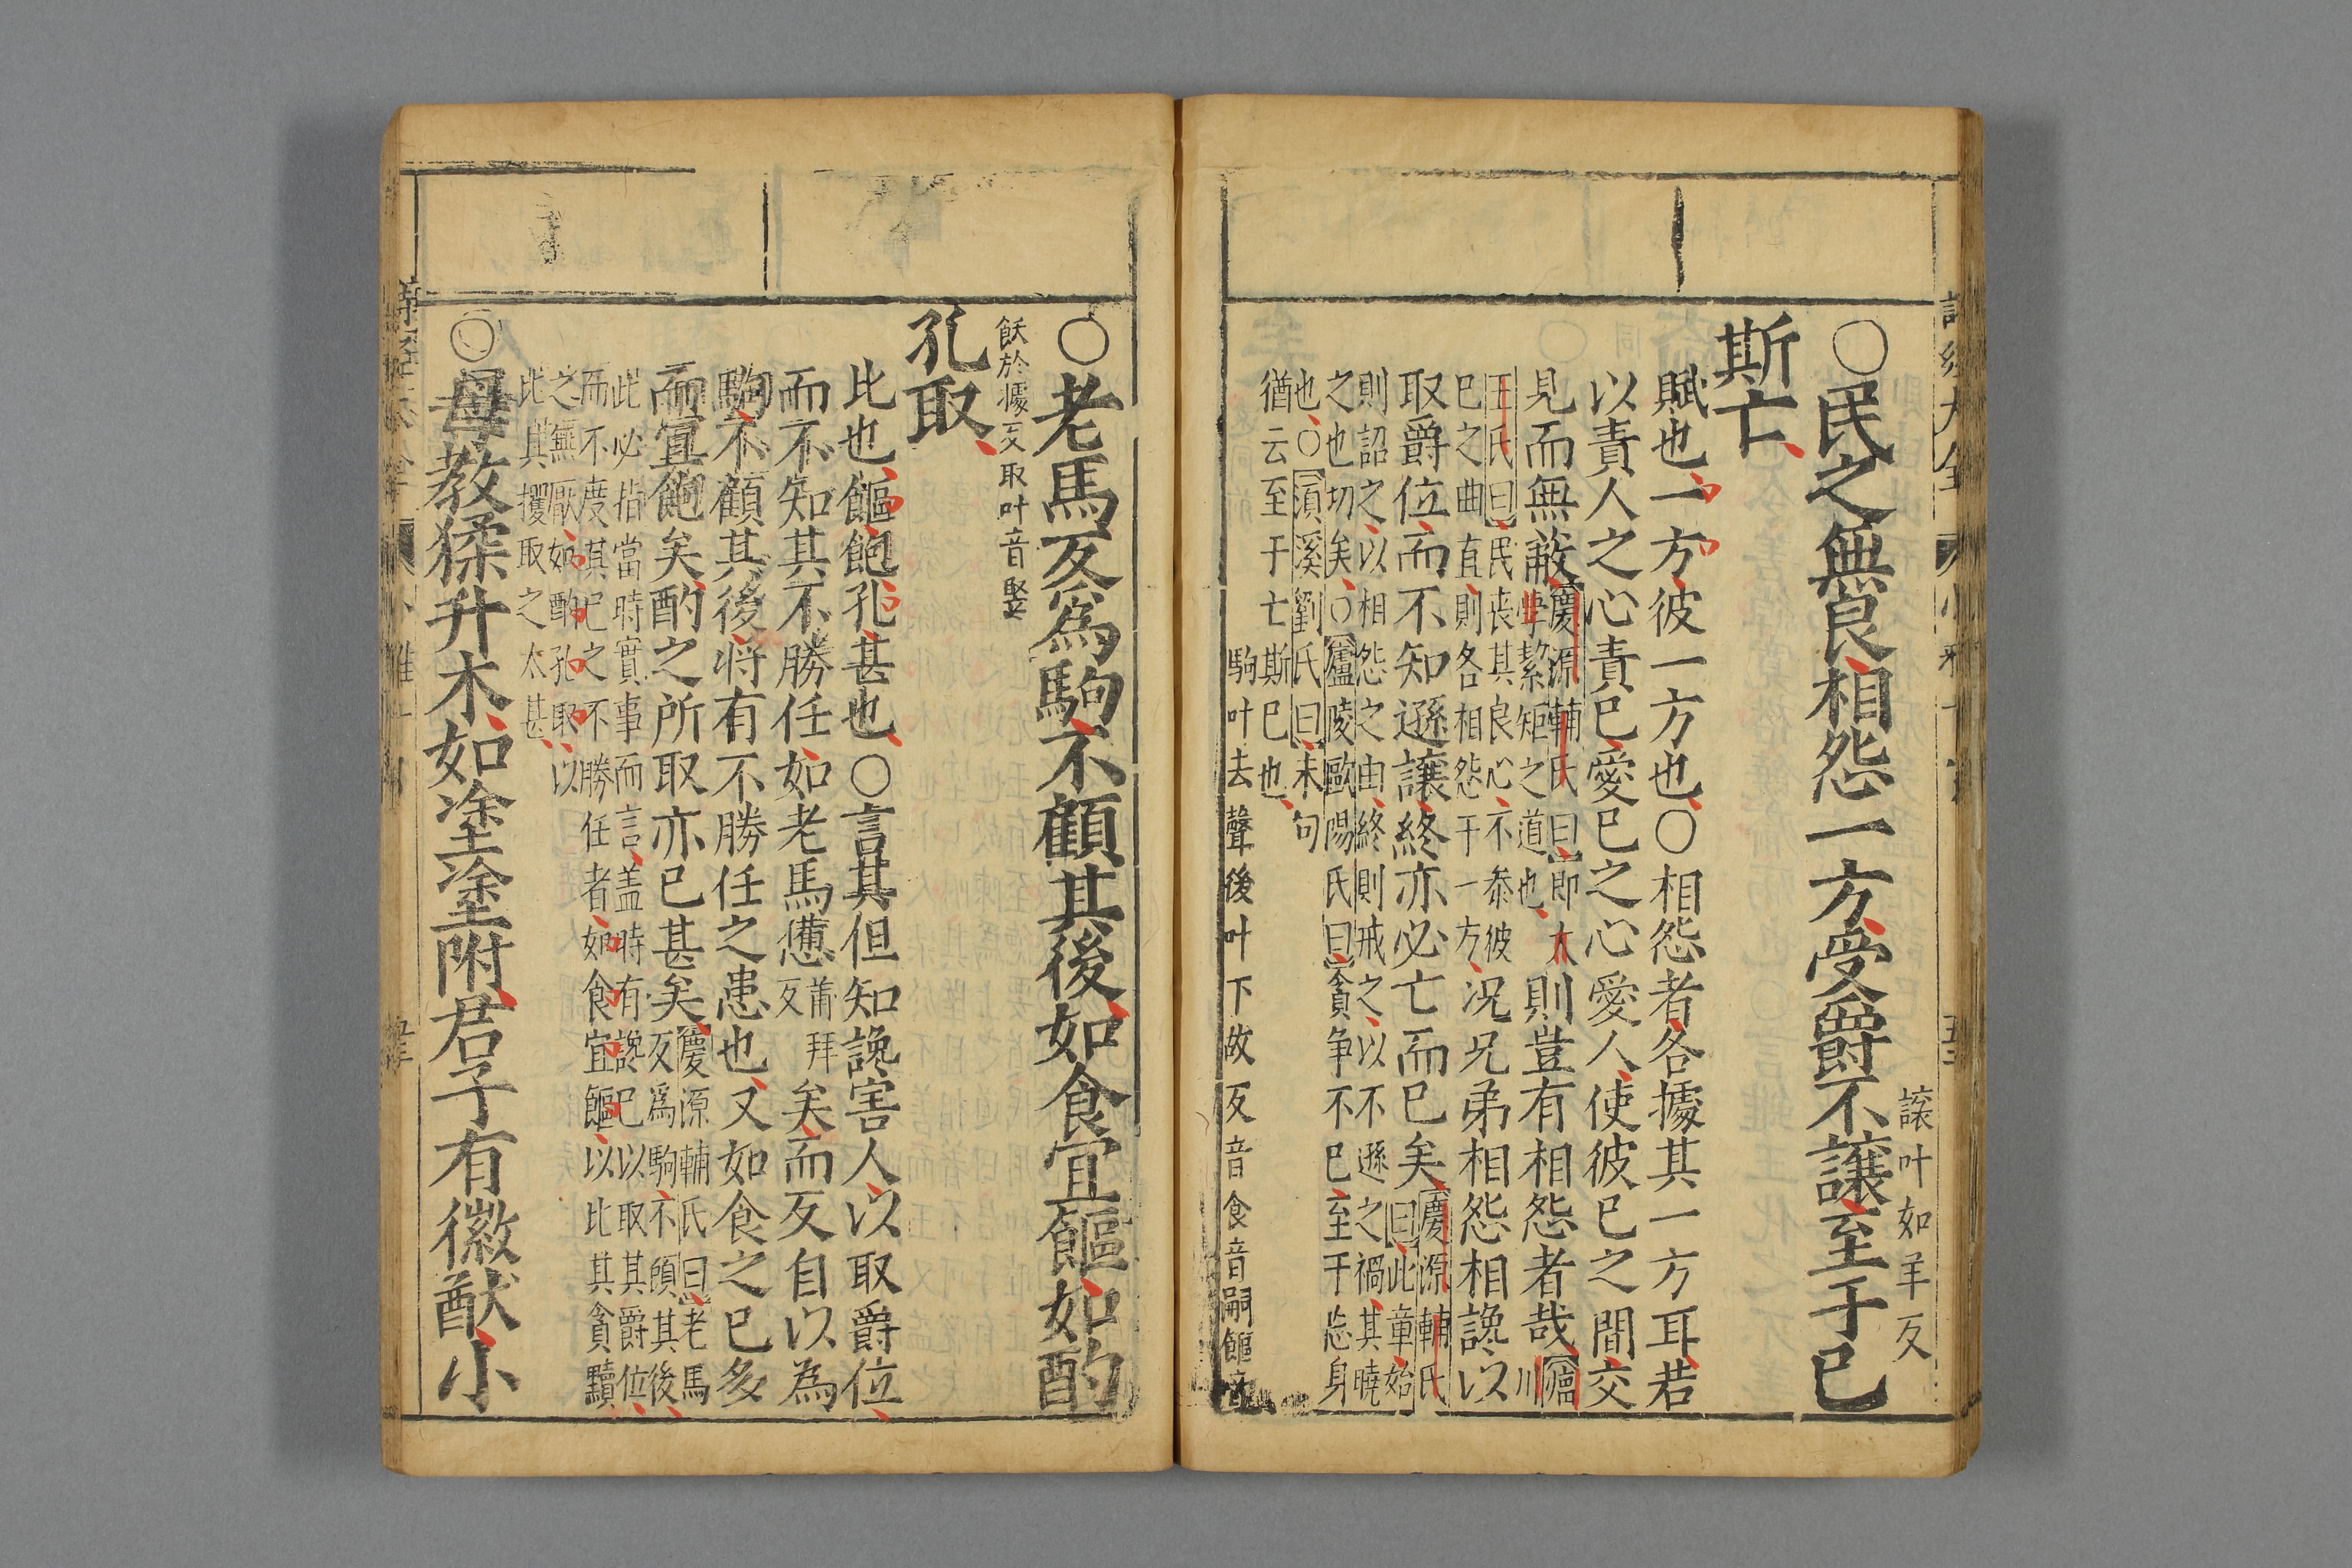 讓叶如羊反
○民之無良相怨一方受爵不讓至于已
斯亡
賦也一方彼一方也○相怨者各據其一方耳若
以責人之心責已愛已之心愛人使彼已之間交
見而無蔽
慶源輔氏曰即大
學絜矩之道也
則豈有相怨者哉
廬
川
王氏曰民喪其良心不叅彼
已之曲直則各相怨于一方
況兄弟相怨相讒以
取爵位而不知遜讓終亦必亡而已矣
慶源輔氏
曰此章始
則詔之以相怨之由終則戒之以不遜之禍其曉
之也切矣○廬陵歐陽氏曰貪爭不已至于忘身
也○濵溪劉氏曰末句
猶云至于亡斯已也
駒叶去聲後叶下故反音食音嗣饇音
○老馬反爲駒不顧其後如食宜饇如酌
飫於據反取叶音娶
孔取
比也饇飽孔甚也○言其但知讒害人以取爵位
而不知其不勝任如老馬憊
蒲拜
反
矣而反自以為
駒不顧其後将有不勝任之患也又如食之已多
而宜飽矣酌之所取亦已甚矣
慶源輔氏曰老馬
反爲駒不顧其後
此必指當時實事而言盖時有讒已以取其爵位
而不度其已之不勝任者如食宜饇以比其貪黷
之無厭如酌孔取以
比其攫取之太甚
○毋教猱升木如塗塗附君子有徽猷小